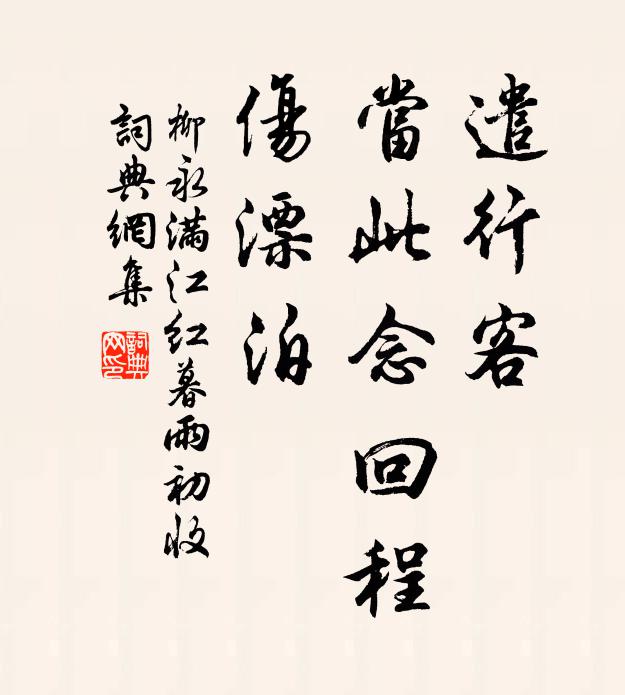 遣行客
當此念回程
傷漂泊
柳永滿江紅暮雨初收
詞典網集
詞典
网印